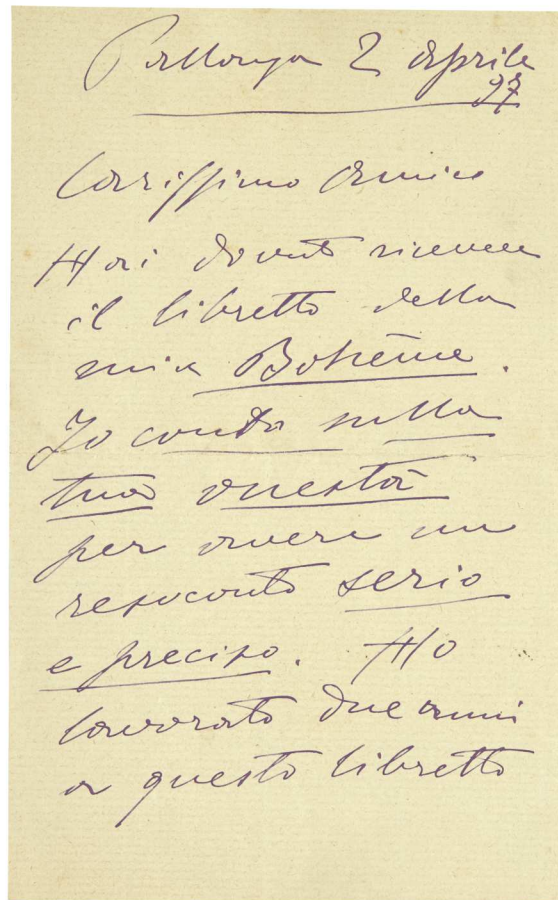 Pallanza 2 Aprile
97
Carissimo Amico
Hai dovuto ricevere
il libretto della
mia Bohème.
Io conto sulla
tua onestà
per avere un
resoconto serio
e preciso. Ho
lavorato due anni
a questo libretto